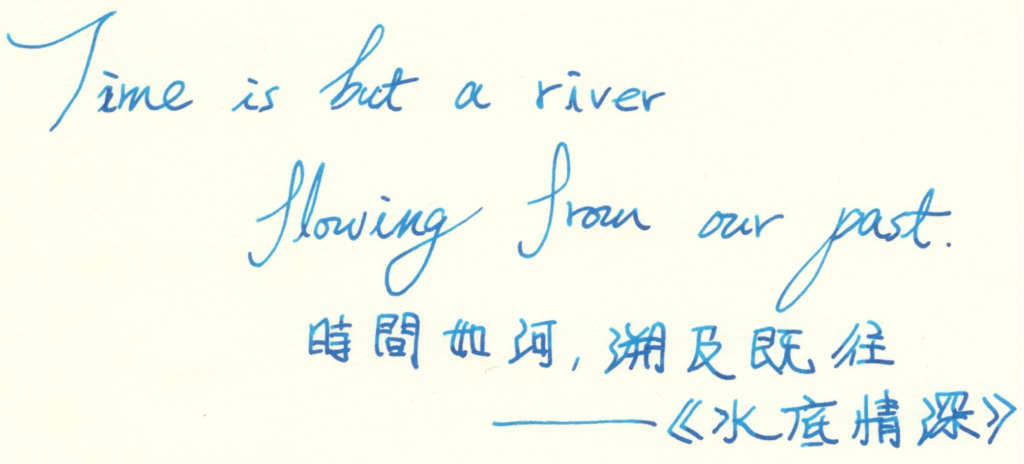 Time is but a river
flowing from our past.
時間如河,溯及既往
——《水底情深》